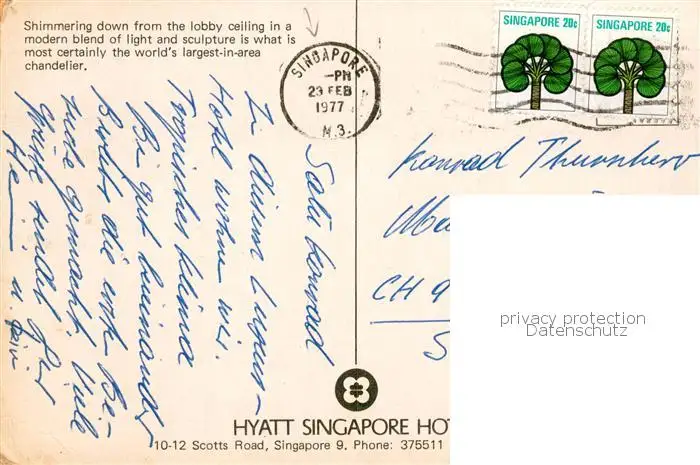 Shimmering down from the lobby ceiling in a
modern blend of light and sculpture is what is
most certainly the world's largest-in-area
chandelier.
SINGAPORE
-PM
23 FEB
1977
N.3.
SINGAPORE 20c
SINGAPORE 20c
Salü Konrad
In diesem Luxus-
Hotel wohnen wir.
Tropisches Klima
Bin gut beieinander
Wurde die erste Be-
suche gemacht. Viele
Grüsse sendet Dir
Konrad Thurnherr
CH 9
S
privacy protection
Datenschutz
HYATT SINGAPORE HO
10-12 Scotts Road, Singapore 9. Phone: 375511